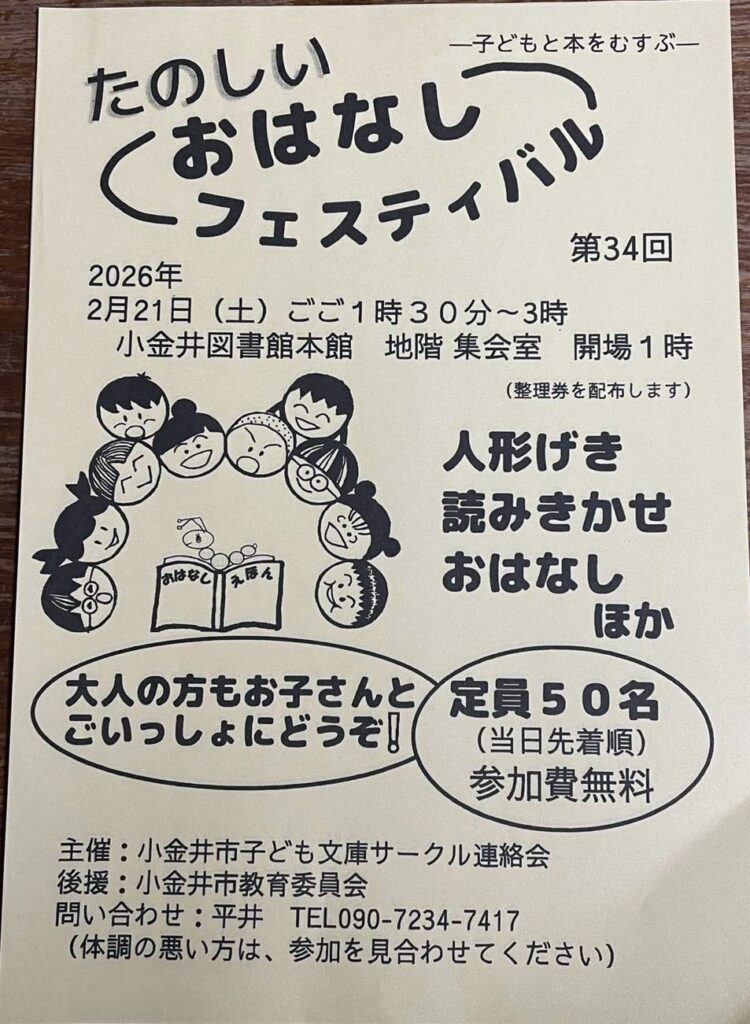 ―子どもと本をむすぶ―
たのしい
おはなし
フェスティバル
第34回
2026年
2月21日（土）ごご１時３０分～3時
小金井図書館本館　地階 集会室　開場１時
（整理券を配布します）
人形げき
読みきかせ
おはなし
ほか
おはなし えほん
大人の方もお子さんと
ごいっしょにどうぞ!
定員５０名
（当日先着順）
参加費無料
主催：小金井市子ども文庫サークル連絡会
後援：小金井市教育委員会
問い合わせ：平井　TEL090-7234-7417
（体調の悪い方は、参加を見合わせてください）